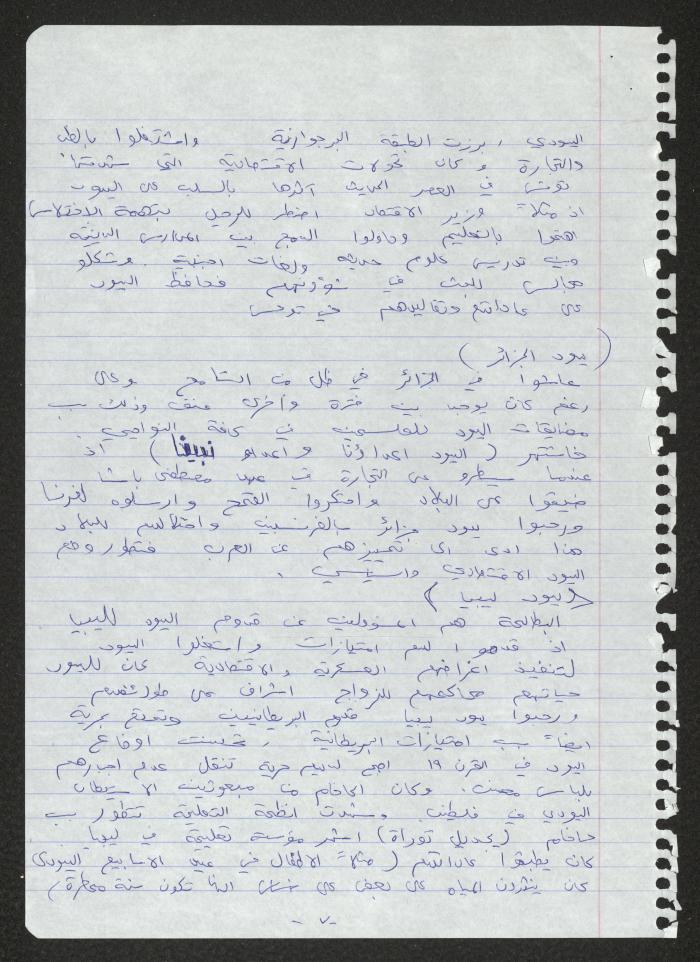 اليهودي، برزت الطبقة البرجوازية واشتغلوا بالطب
والتجارة وكان تحولات الاقتصادية التي شهدتها
تونس في العصر الحديث أثرها بالسلب على اليهود
اذ مثلاً وزير الاقتصاد اضطر للرحيل بتهمة الاختلاس
اهتموا بالتعليم وحاولوا الدمج بين المدارس الدينية
وبين تدريس علوم حديثه ولغات اجنبية. وشكلو
مجالس للبحث في شؤونهم فحافظ اليهود
على عاداتهم وتقاليدهم في تونس
(يهود الجزائر)
عاشوا في الجزائر في ظل من التسامح وعلى
رغم كان يوجد بين فترة وأخرى عنف وذلك ب
مضايقات اليهود للمسلمين في كافة النواحي
فاشتهر (اليهود اعداؤنا واعداء نبينا) اذ
عندما سيطرو على التجارة في عهد مصطفى باشا
ضيقوا على البلاد واحتكروا القمح وارسلوه لفرنسا
ورحبوا يهود جزائر بالفرنسيين واحتلالهم للبلاد
هذا ادى الى تمييزهم عن العرب فتطور وضع
اليهود الاقتصادي والسياسي.
(يهود ليبيا)
البطالمة هم المسؤولين عن قدوم اليهود لليبيا
اذ قدموا لهم امتيازات واستغلوا اليهود
لتنفيذ اغراضهم العسكرية والاقتصادية كان لليهود
حياتهم محاكمهم للزواج اشراف على طوائفهم
ورحبوا يهود ليبيا قدوم البريطانيين وتمتع بحرية
ايضاً ب امتيازات البريطانية، تحسنت اوضاع
اليهود في القرن ١٩ اصبح لديهم حرية تنقل عدم اجبارهم
بلباس معين. وكان الحاخام من مبعوثين الاستيطان
اليهودي في فلسطين وشهدت انظمة التعليمية تتطور ب
حاخام (يجديل توراة) اشهر مؤسسة تعليمية في ليبيا
كان يطبقوا عاداتهم (مثلاً الاطفال في عيد الاسابيع اليهودي
كان ينثرون المياه على بعض على اساس انها تكون سنة ممطرة)
-٧-